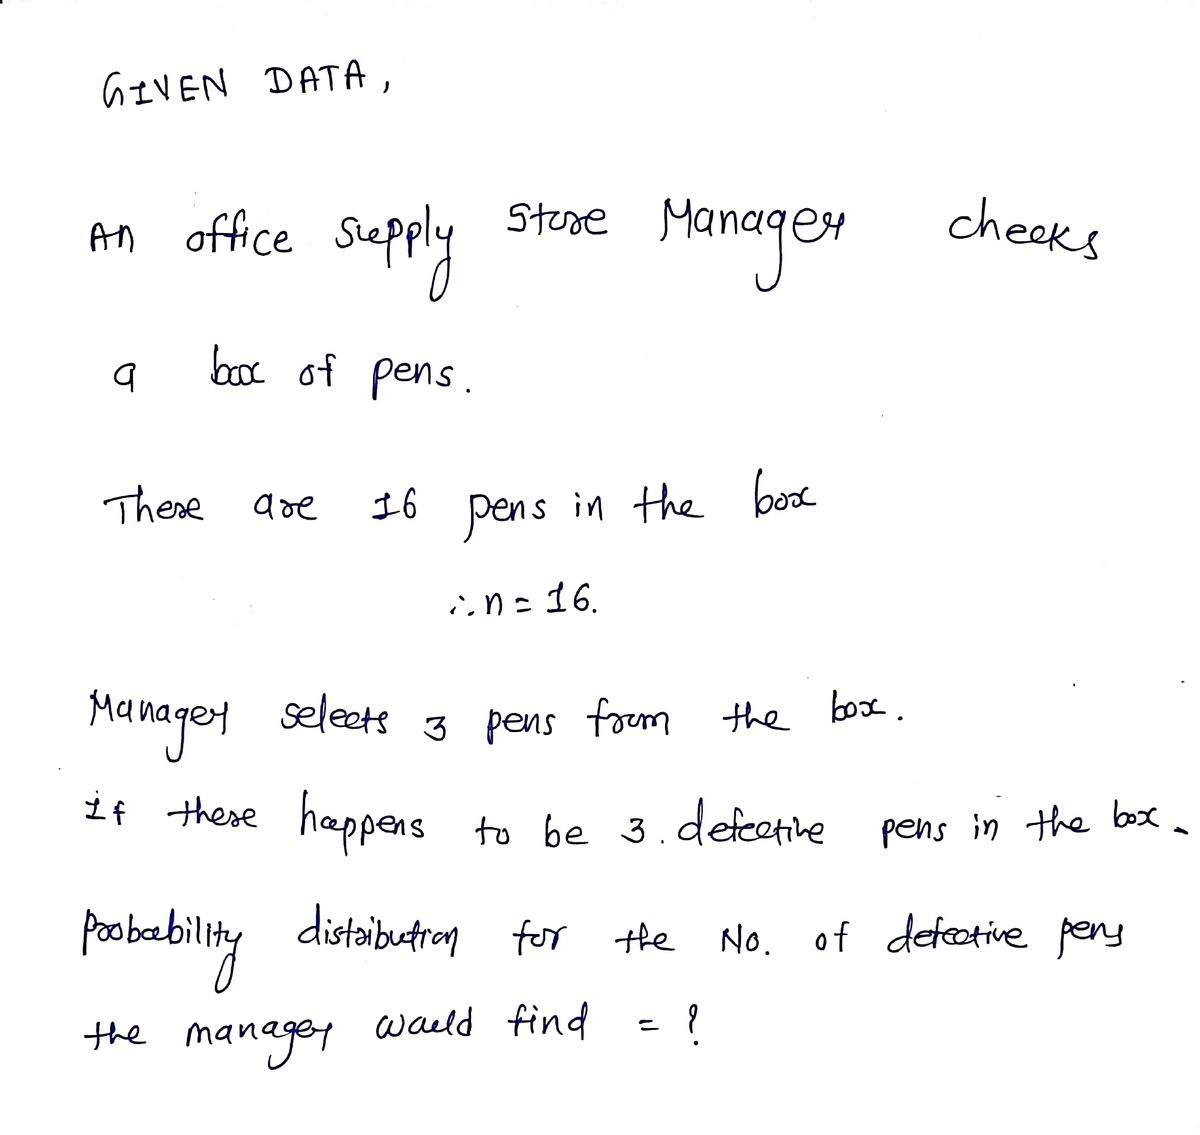 GIVEN DATA,
An office supply store Manager checks
a box of pens.
There are 16 pens in the box
∴ n = 16.
Manager selects 3 pens from the box.
if there happens to be 3. defective pens in the box.
probability distribution for the No. of defective pens
the manager would find = ?